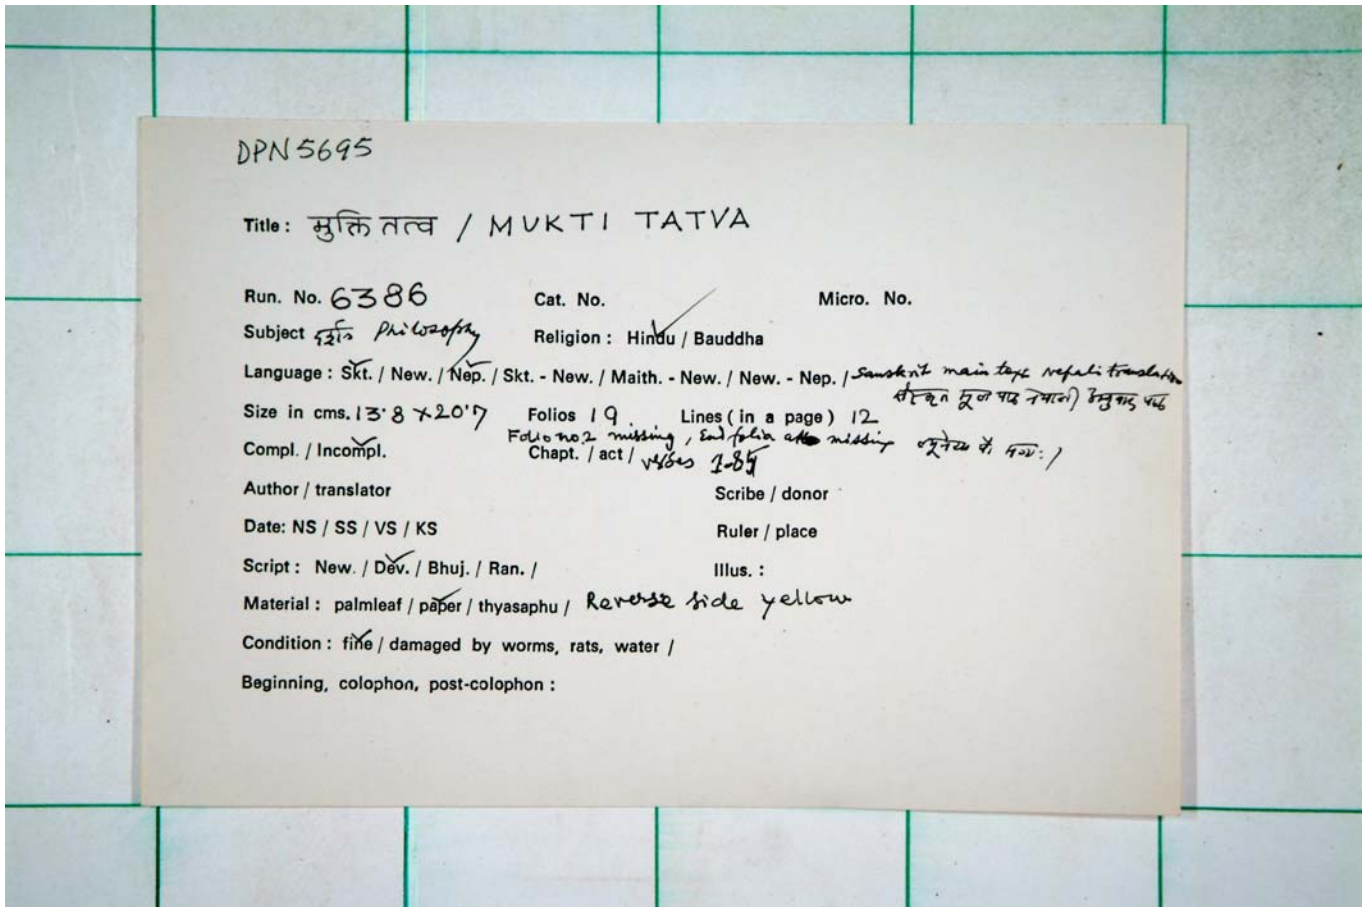 DPN 5695
Title : मुक्ति तत्व / MUKTI TATVA
Run. No. 6386 Cat. No. Micro. No.
Subject दर्शन Philosophy Religion : Hindu / Bauddha
Language : Skt. / New. / Nep. / Skt. - New. / Maith. - New. / New. - Nep. / Sanskrit main text nepali translation
संस्कृत मूल पाठ नेपाली अनुवाद
Size in cms. 13.8 x 20.7 Folios 19 Lines ( in a page ) 12
Folio no. 2 missing, End folia missing
Compl. / Incompl. Chapt. / act / verses 1-85
Author / translator Scribe / donor
Date: NS / SS / VS / KS Ruler / place
Script : New. / Dev. / Bhuj. / Ran. / Illus. :
Material : palmleaf / paper / thyasaphu / Reverse side yellow
Condition : fine / damaged by worms, rats, water /
Beginning, colophon, post-colophon :